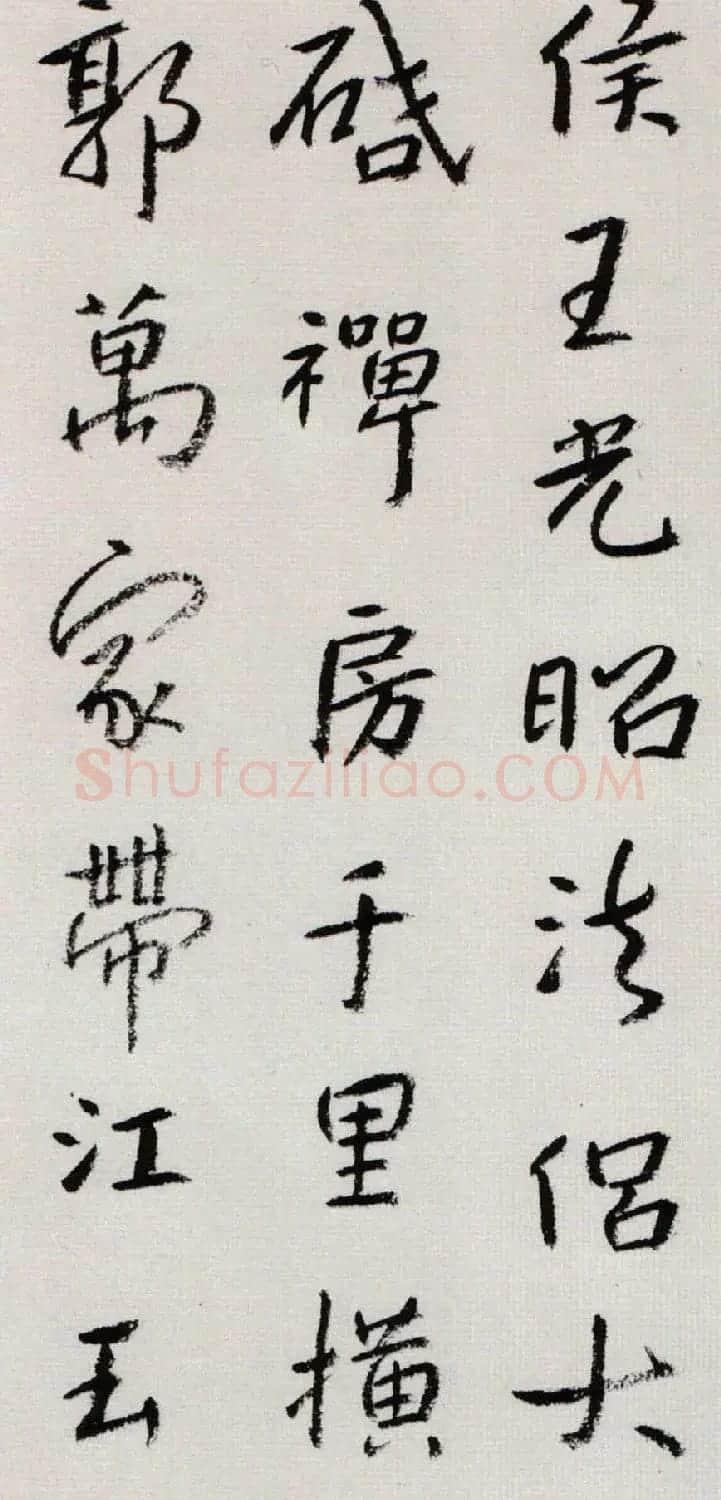 侯王光昭法侣大
啟禪房千里横
郭萬家帶江玉
Shufaziliao.COM